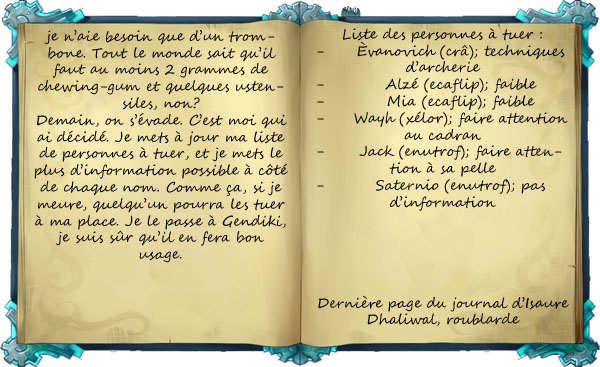 je n'aie besoin que d'un trom-
bone. Tout le monde sait qu'il
faut au moins 2 grammes de
chewing-gum et quelques usten-
siles, non?
Demain, on s'évade. C'est moi qui
ai décidé. Je mets à jour ma liste
de personnes à tuer, et je mets le
plus d'information possible à côté
de chaque nom. Comme ça, si je
meure, quelqu'un pourra les tuer
à ma place. Je le passe à Gendiki,
je suis sûr qu'il en fera bon
usage.
Liste des personnes à tuer :
- Èvanovich (crâ); techniques
d'archerie
- Alzé (ecaflip); faible
- Mia (ecaflip); faible
- Wayh (xélor); faire attention
au cadran
- Jack (enutrof); faire atten-
tion à sa pelle
- Saternio (enutrof); pas
d'information
Dernière page du journal d'Isaure
Dhaliwal, roublarde